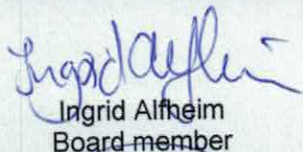 Ingrid Alfheim
Ingrid Alfheim
Board member